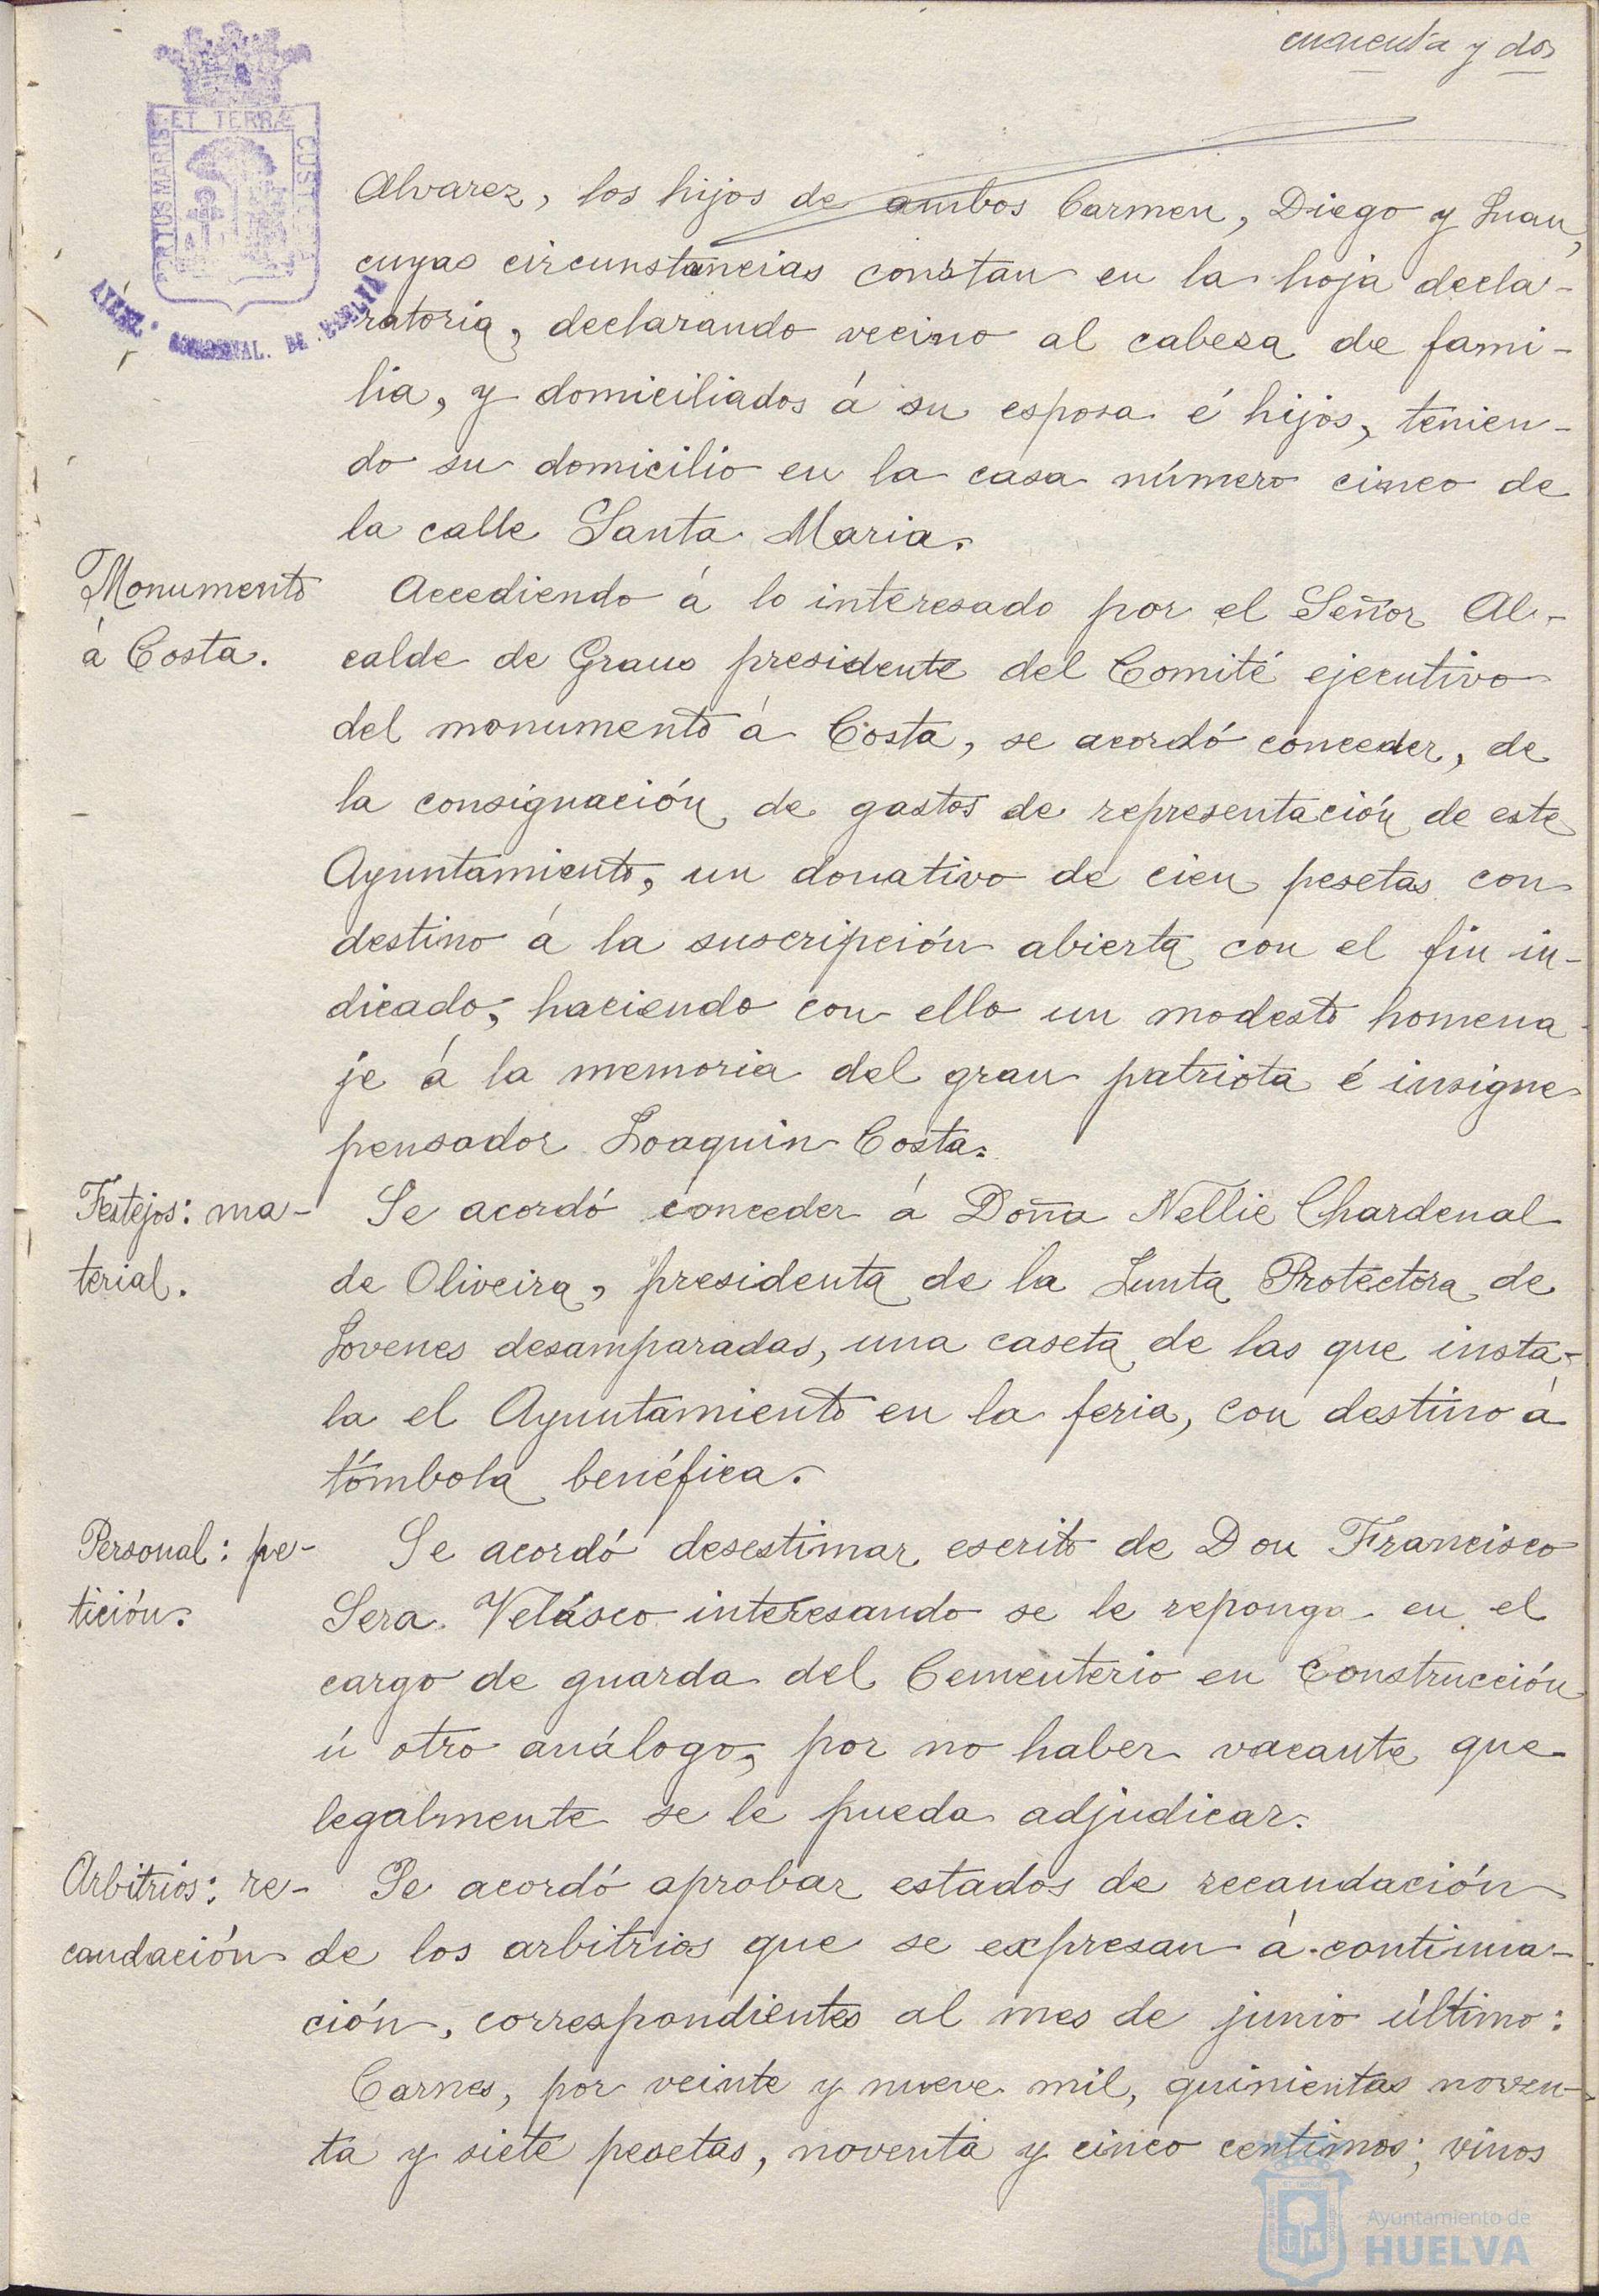 cuarenta y dos
ET TERRÆ
PORTUS MARIS
CUSTODIA
Alvarez, los hijos de ambos Carmen, Diego y Juan,
cuyas circunstancias constan en la hoja decla-
ratoria, declarando vecino al cabeza de fami-
lia, y domiciliados á su esposa é hijos, tenien-
do su domicilio en la casa número cinco de
la calle Santa Maria.
Monumento
á Costa.
Accediendo á lo interesado por el Señor Al-
calde de Graus presidente del Comité ejecutivo
del monumento á Costa, se acordó conceder, de
la consignación de gastos de representación de este
Ayuntamiento, un donativo de cien pesetas con
destino á la suscripción abierta con el fin in-
dicado, haciendo con ello un modesto homena-
je á la memoria del gran patriota é insigne
pensador Joaquin Costa.
Festejos: ma-
terial.
Se acordó conceder á Doña Nellie Chardenal
de Oliveira, presidenta de la Junta Protectora de
Jovenes desamparadas, una caseta de las que insta-
la el Ayuntamiento en la feria, con destino á
tómbola benéfica.
Personal: pe-
tición.
Se acordó desestimar escrito de Don Francisco
Sera Velásco interesando se le reponga en el
cargo de guarda del Cementerio en Construcción
ú otro análogo, por no haber vacante que
legalmente se le pueda adjudicar.
Arbitrios: re-
caudación
Se acordó aprobar estados de recaudación
de los arbitrios que se expresan á continua-
ción, correspondientes al mes de junio último:
Carnes, por veinte y nueve mil, quinientas noven-
ta y siete pesetas, noventa y cinco centimos; vinos
Ayuntamiento de
HUELVA